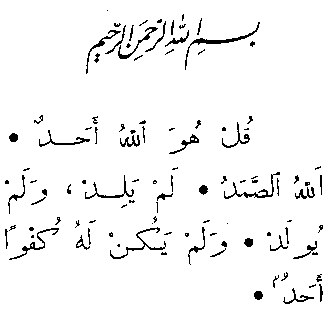 بِسْمِ اللهِ الرَّحْمَنِ الرَّحِيمِ
قُلْ هُوَ ٱللهُ أَحَدٌ •
ٱللهُ ٱلصَّمَدُ • لَمْ يَلِدْ، وَلَمْ
يُولَدْ • وَلَمْ يَكُنْ لَهُ كُفُوًا
أَحَدٌ •